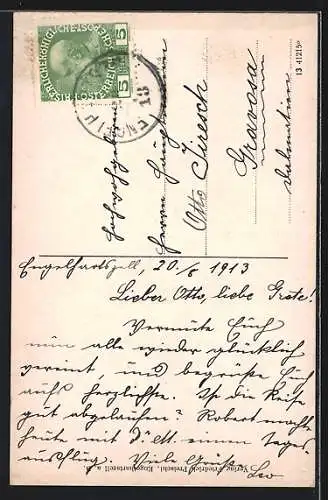 KAISERLICHE KÖNIGLICHE ÖSTERREICHISCHE POST
5 5
18
Hochwohlgeboren
Herrn Hauptmann
Otto
Gravosa
Dalmatien
13 41215
Engelhartszell, 20./6 1913
Lieber Otto, liebe Grete!
Vermute Euch
nun alle wieder glücklich
vereint, und begrüße Euch
aufs herzlichste. Ist die Reise
gut abgelaufen? Robert macht
heute mit einen Tages-
ausflug. Viele Grüße
Leo
Verlag Friedrich Pretschl, Engelhartszell a. D.